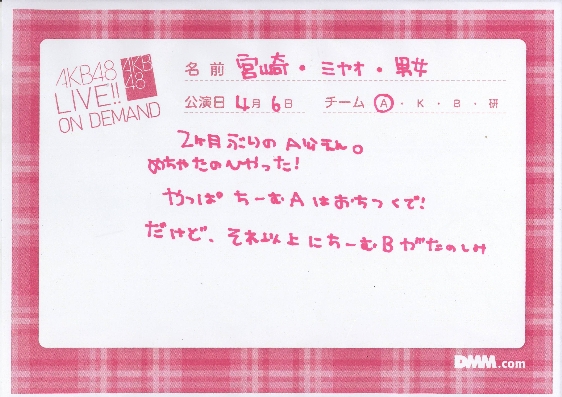 AKB48
LIVE!!
ON DEMAND
AKB
48
名前 宮崎・ミヤオ・男女
公演日 4月6日 チーム A・K・B・研
2ヶ月ぶりの A公えん。
めちゃたのしかった!
やっぱ ちーむAはおちつくで!
だけど、それ以上にちーむBがたのしみ
DMM.com